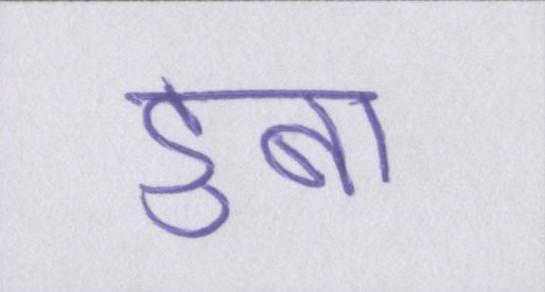 डुबा